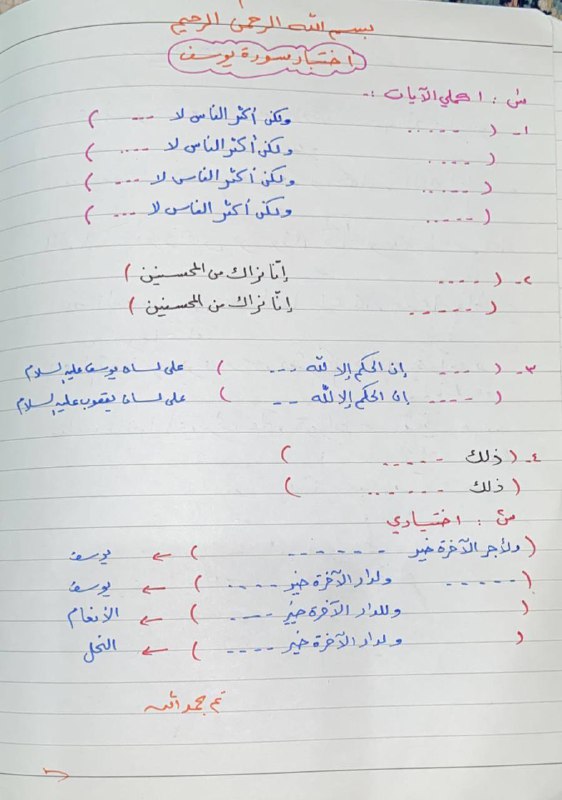 بسم الله الرحمن الرحيم
اختبار سورة يوسف
س١ : اكملي الآيات :-
١- ( ..... ولكن أكثر الناس لا ... )
( .... ولكن أكثر الناس لا .... )
( ..... ولكن أكثر الناس لا ... )
( ..... ولكن أكثر الناس لا ... )
٢- ( .... إنّا نراك من المحسنين )
( ..... إنّا نراك من المحسنين )
٣- ( ... إن الحكم إلا لله ... ) على لسان يوسف عليه السلام
( .... إن الحكم إلا لله .. ) على لسان يعقوب عليه السلام
٤- ( ذلك ..... )
( ذلك ...... )
س٢ : اختياري
( ولأجر الآخرة خير ...... ) ← يوسف
( ..... ولدار الآخرة خير .... ) ← يوسف
( وللدار الآخرة خير .... ) ← الأنعام
( ولدار الآخرة خير .... ) ← النحل
تم بحمد الله